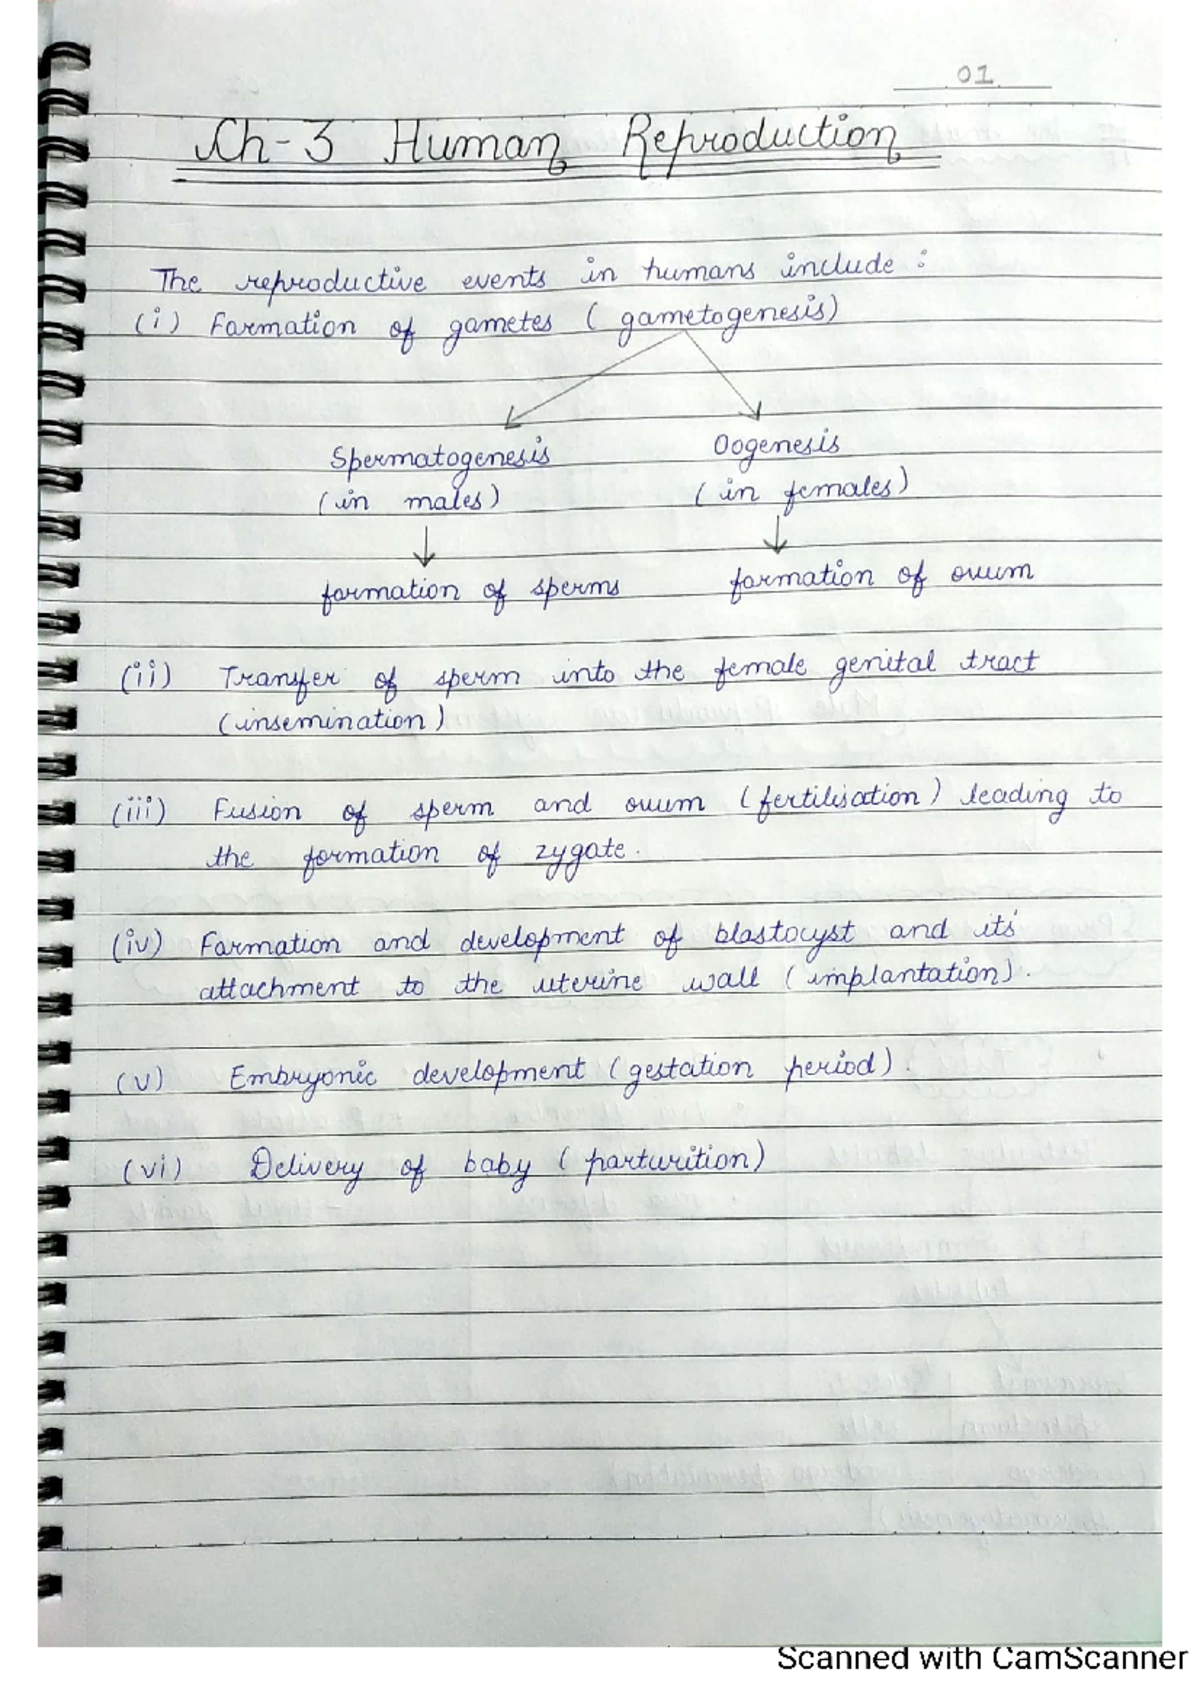 01
Ch-3 Human Reproduction
The reproductive events in humans include :
(i) Formation of gametes ( gametogenesis)
Spermatogenesis Oogenesis
(in males) (in females)
formation of sperms formation of ovum
(ii) Transfer of sperm into the female genital tract
(insemination)
(iii) Fusion of sperm and ovum (fertilisation) leading to
the formation of zygate.
(iv) Formation and development of blastocyst and its'
attachment to the uterine wall (implantation).
(v) Embryonic development (gestation period).
(vi) Delivery of baby ( parturition)
Scanned with CamScanner